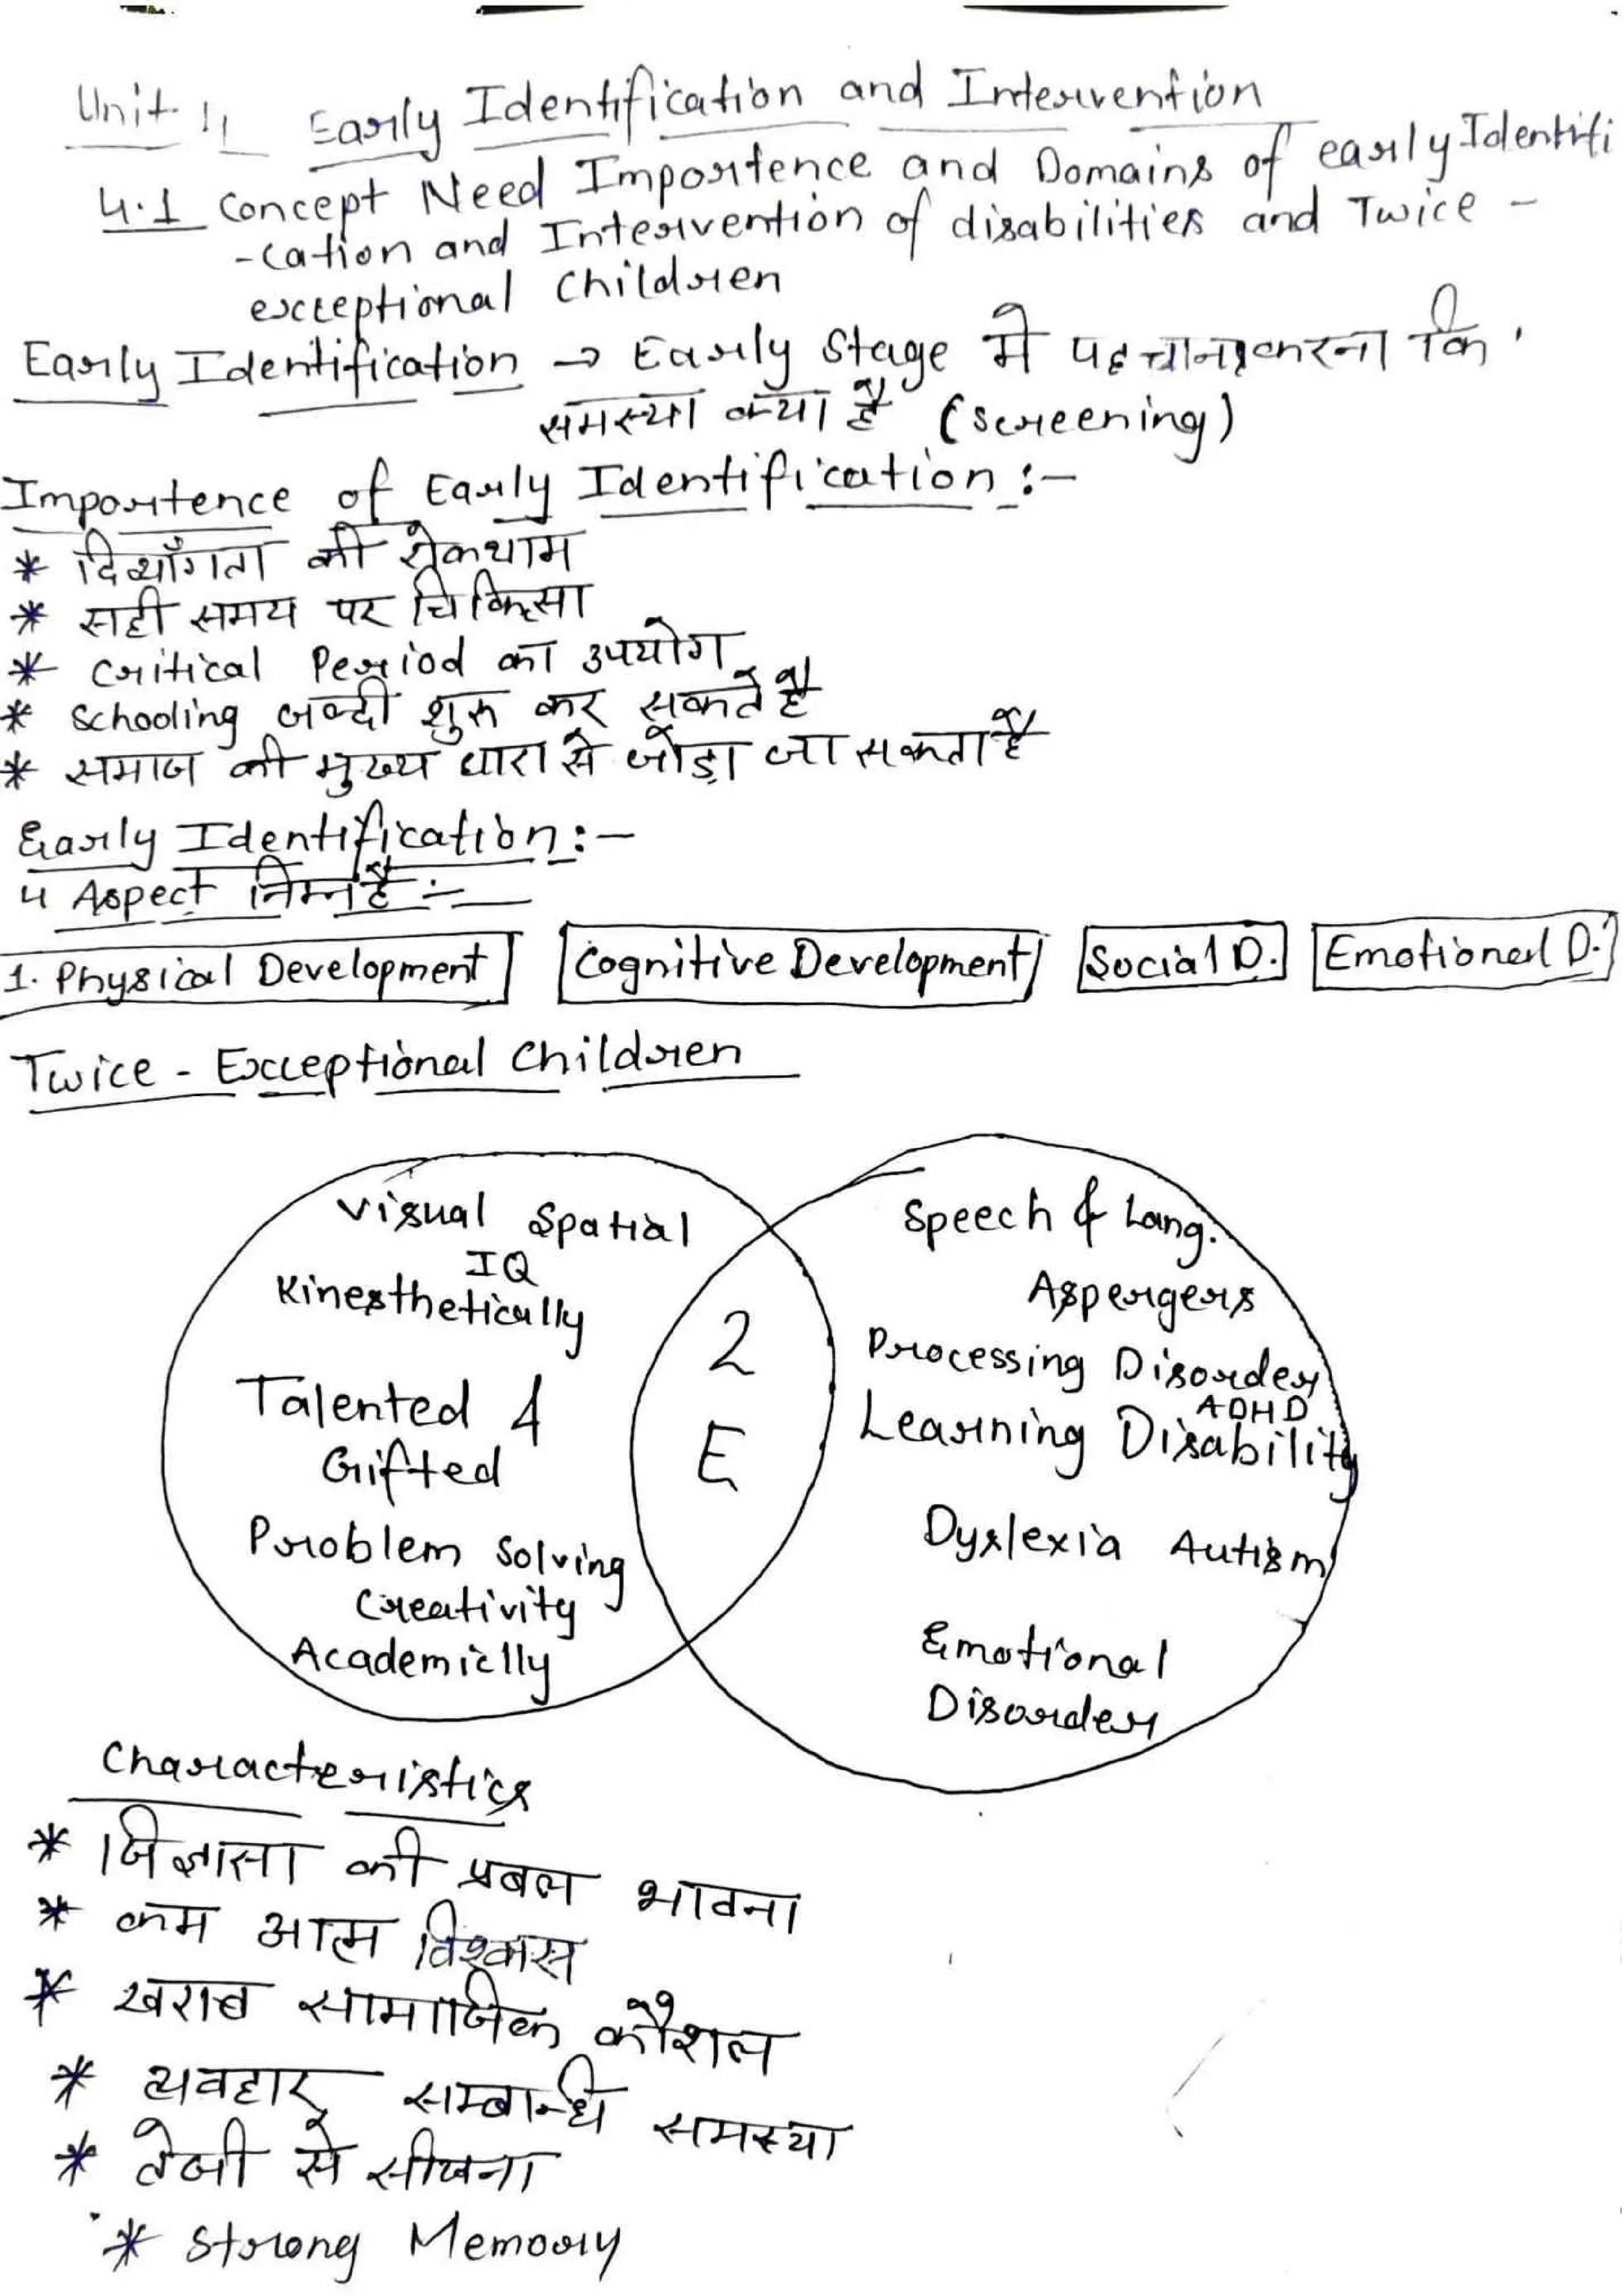 Unit 4 Early Identification and Intervention
4.1 Concept Need Importence and Domains of early Identifi
-cation and Intervention of disabilities and Twice -
exceptional Children
Early Identification → Early Stage में पहचान करना कि
समस्या क्या है (screening)
Importence of Early Identification :-
* दिव्याँगता की रोकथाम
* सही समय पर चिकित्सा
* Critical Period का उपयोग
* Schooling जल्दी शुरू कर सकते है
* समाज की मुख्य धारा से जोड़ा जा सकता है
Early Identification :-
4 Aspect निम्न है :-
1. Physical Development Cognitive Development Social D. Emotional D.
Twice - Exceptional Children
Visual Spatial
IQ
Kinesthetically
Talented &
Gifted
Problem Solving
Creativity
Academiclly
2
E
Speech & Lang.
Aspergers
Processing Disorder
ADHD
Learning Disability
Dyslexia Autism
Emotional
Disorder
Characteristics
* जिज्ञासा की प्रबल भावना
* कम आत्म विश्वास
* खराब सामाजिक कौशल
* व्यवहार सम्बन्धि समस्या
* तेजी से सीखना
* Strong Memory